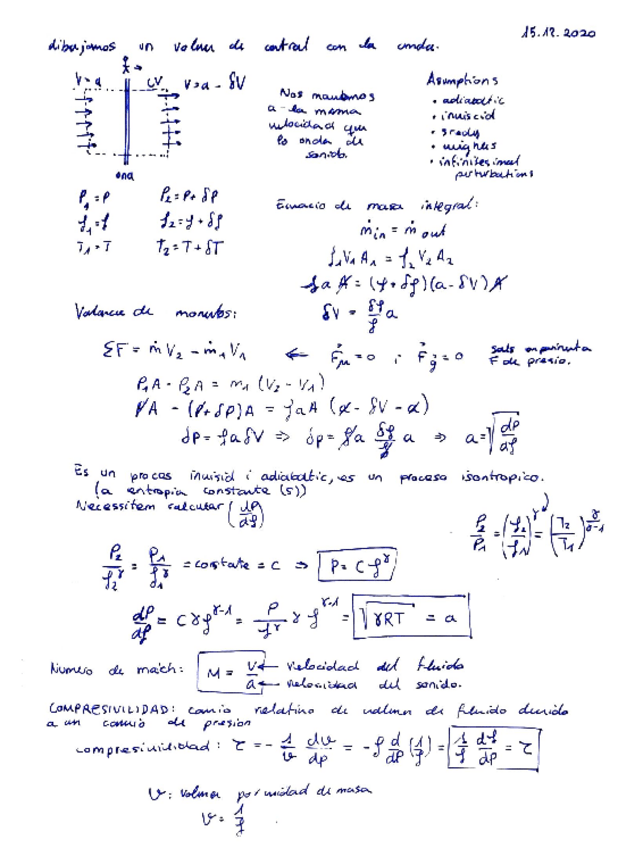 15.12.2020
dibujamos un volumen de control con la onda.
V=a CV V=a - δV
ona
P₁=P P₂=P+δP
ρ₁=ρ ρ₂=ρ+δρ
T₁=T T₂=T+δT
Nos
a la misma
velocidad que
la onda de
sonido.
Asumptions
• adiabatic
• inviscid
• steady
• infinitesimal
perturbations
Ecuacio de masa integral:
ṁin = ṁout
ρ₁V₁A₁ = ρ₂V₂A₂
ρaA = (ρ+δρ)(a-δV)A
δV = δρ/ρ a
ΣF = ṁV₂ - ṁ₁V₁ ← F⃗μ=0 i F⃗g=0
F de presio.
P₁A - P₂A = m₁(V₂-V₁)
PA - (P+δP)A = ρaA (a - δV - a)
δP = ρaδV ⇒ δP = ρa δρ/ρ a ⇒ a=√(dP/dρ)
Es un proces inviscid i adiabatic, es un proceso isentropico.
(a entropia constante (s))
Necessitem calcular (dP/dρ)
P₂/P₁ = (ρ₂/ρ₁)^γ = (T₂/T₁)^(γ/(γ-1))
P₂/ρ₂^γ = P₁/ρ₁^γ = constate = C ⇒ P = Cρ^γ
dP/dρ = Cγρ^(γ-1) = P/ρ^γ γ ρ^(γ-1) = √γRT = a
Numero de mach: M = V/a ← velocidad del fluido
← velocidad del sonido.
COMPRESIVILIDAD: camio relativo de volumen de fluido devido
a un camio de presion
compresivilidad: τ = - 1/v dv/dp = -ρ d/dP (1/ρ) = 1/ρ dρ/dP = τ
v: volumen por unidad de masa
v = 1/ρ